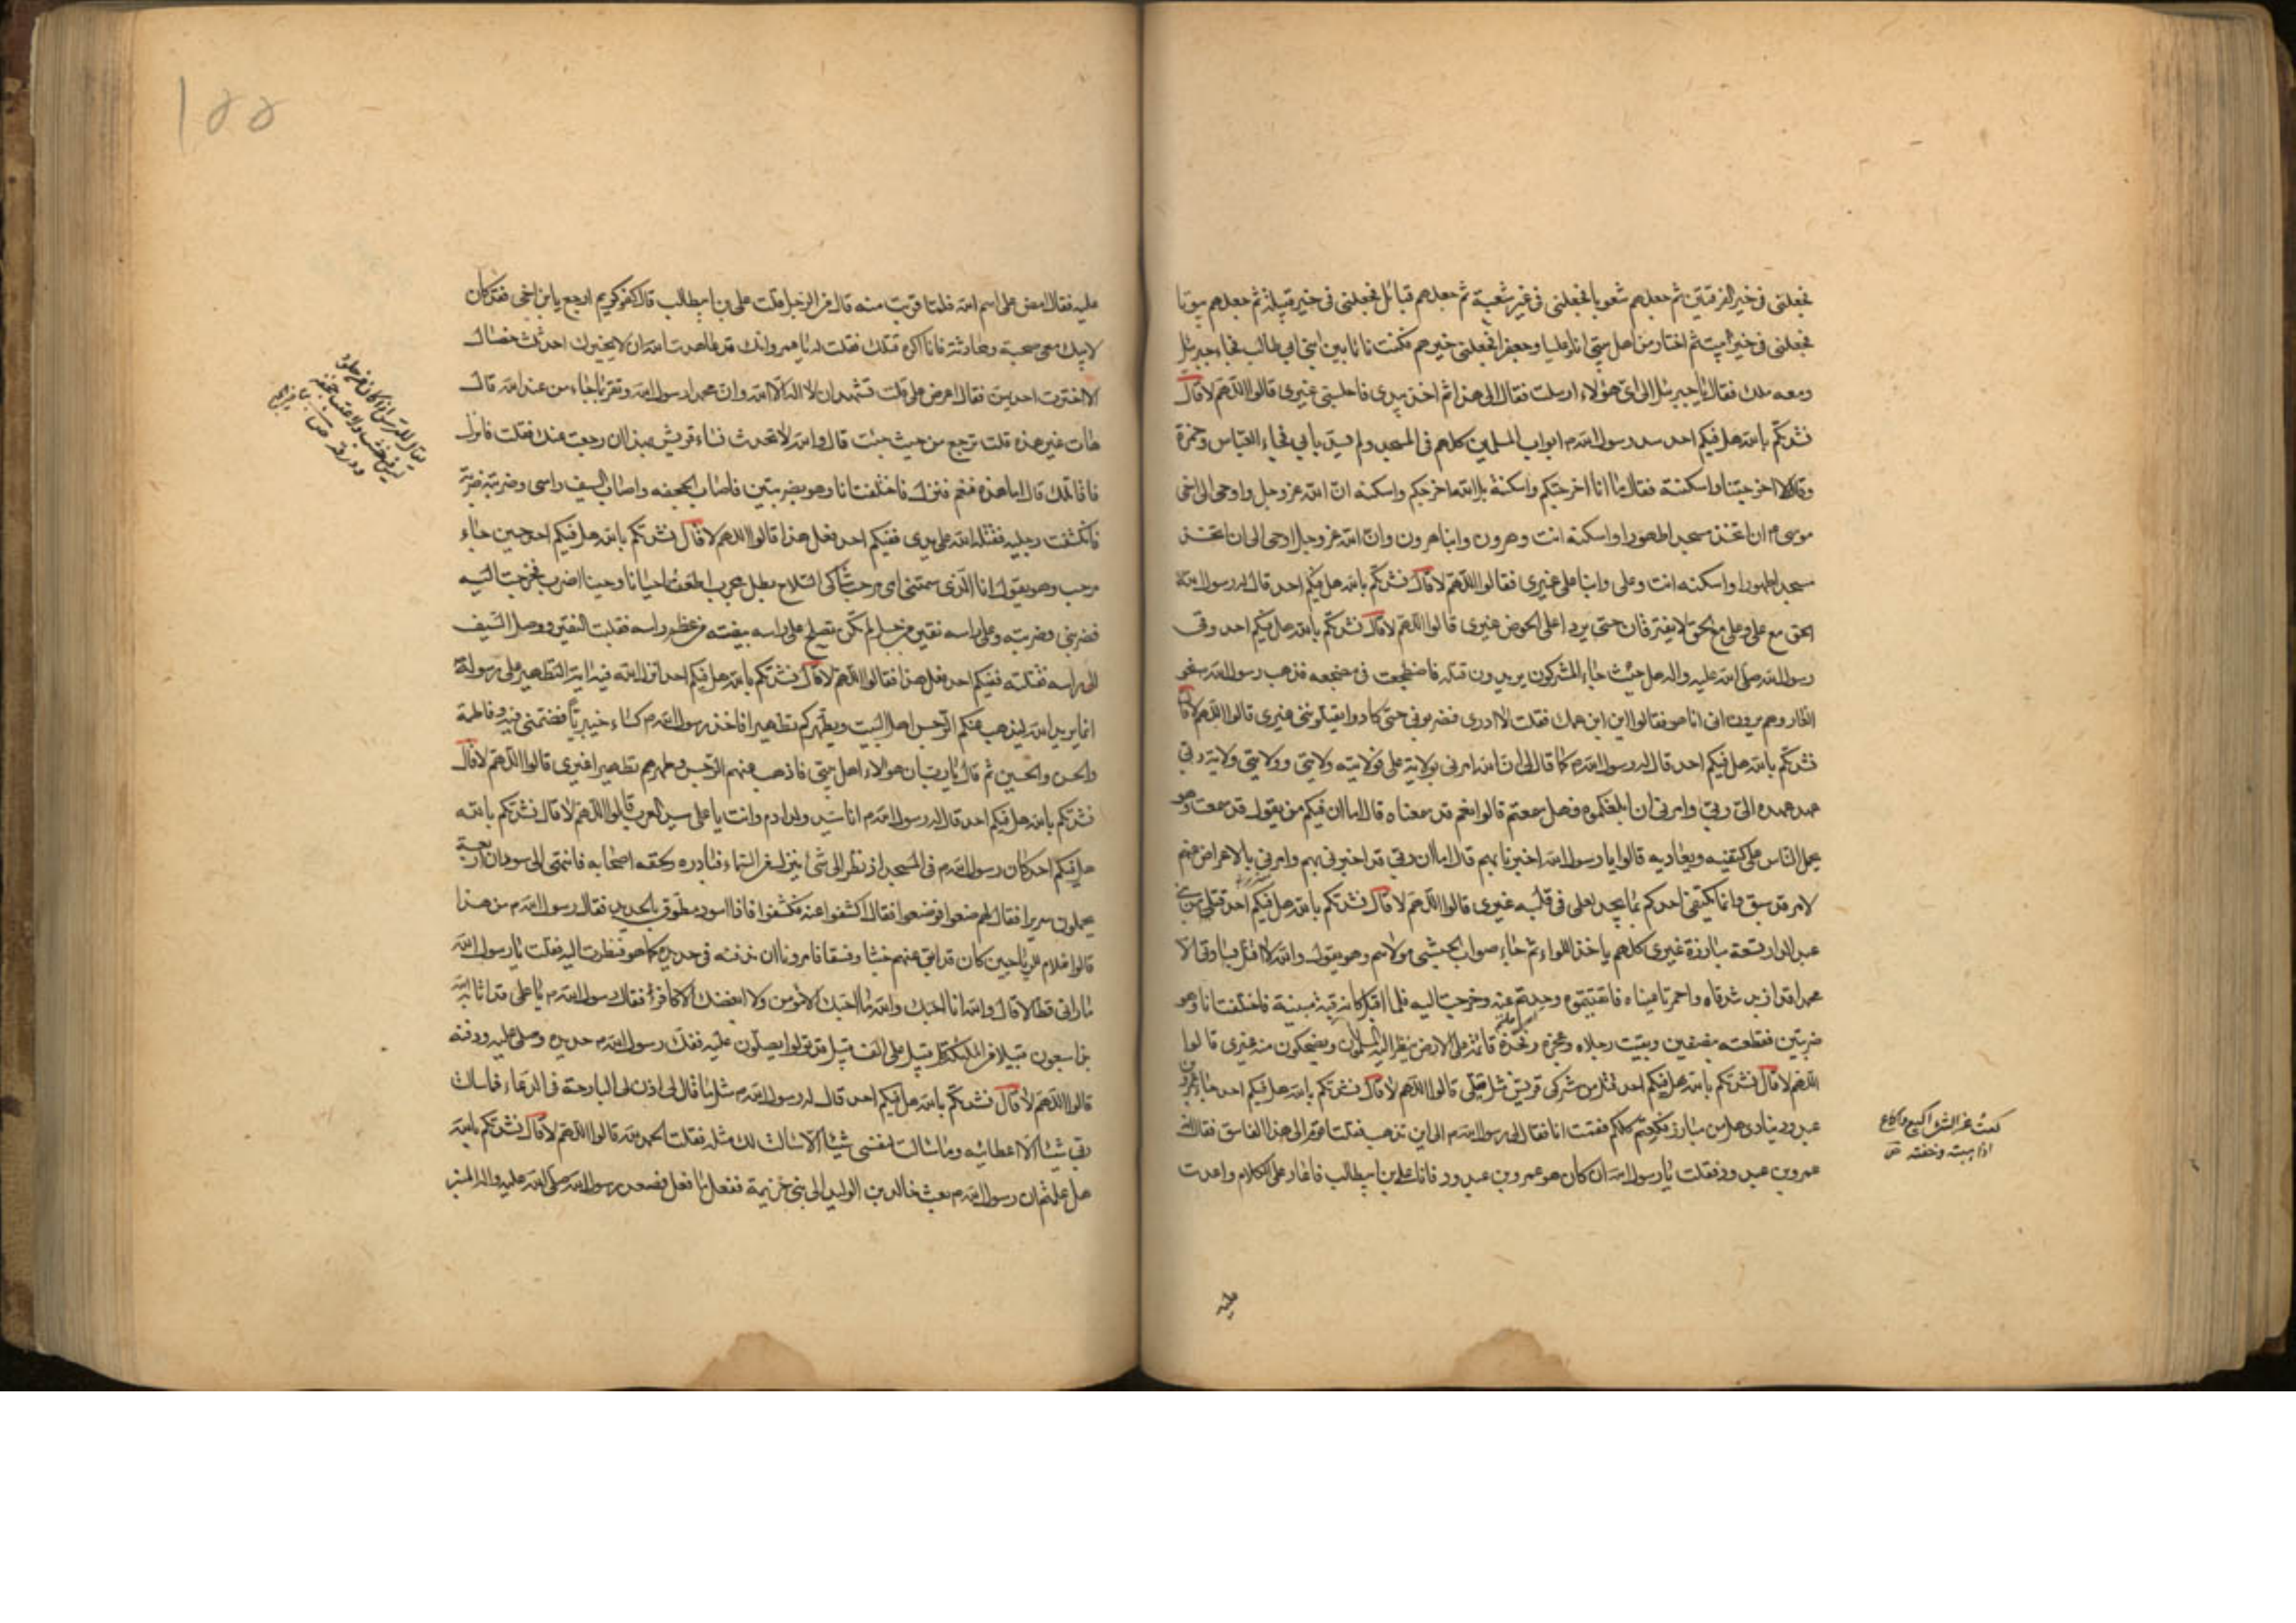 فجعلنى فى خير الفرقتين ثم جعلهم شعوبا فجعلنى فى خير شعبة ثم جعلهم قبائل فجعلنى فى خير قبيلة ثم جعلهم بيوتا
فجعلنى فى خير بيت ثم اختار من اهل بيتى انا وعليا وجعفرا فجعلنى خيرهم فكنت نائما بين ابنى ابى طالب فجاء جبرئيل
ومعه ملك فقال يا جبرئيل الى اى هؤلاء ارسلت فقال الى هذا ثم اخذ بيدى فاجلسنى غيرى قالوا اللهم لا قال
نشدتكم بالله هل فيكم احد سد رسول الله م ابواب المسلمين كلهم فى المسجد ولم يسد بابى فجاء العباس وحمزة
وقالا اخرجتنا واسكنته فقال ما انا اخرجتكم واسكنته بل الله اخرجكم واسكنه ان الله عز وجل واوحى الى اخى
موسى م ان اتخذ مسجدا طهورا واسكنه انت وهرون وابنا هرون وان الله عز وجل اوحى الى ان اتخذ
مسجدا طهورا واسكنه انت وعلى وابنا على غيرى فقالوا اللهم لا قال نشدتكم بالله هل فيكم احد قال له رسول الله
الحق مع على وعلى مع الحق لا يفترقان حتى يردا على الحوض غيرى قالوا اللهم لا قال نشدتكم بالله هل فيكم احد وقى
رسول الله صلى الله عليه واله حيث جاء المشركون يريدون قتله فاضطجعت فى مضجعه فذهب رسول الله نحو
الغار وهم يرون انى انا هو فقالوا اين ابن عمك فقلت لا ادرى فضربونى حتى كادوا يقتلوننى غيرى قالوا اللهم لا قال
نشدتكم بالله هل فيكم احد قال له رسول الله م كما قال لى ان الله امرنى بولاية على فولايته ولايتى وولايتى ولاية ربى
عهد عهده الى ربى وامرنى ان ابلغكموه فهل سمعتم قالوا نعم قد سمعناه قال اما ان فيكم من يقول قد سمعت وهو
يحمل الناس على كتفيه ويعاديه قالوا يا رسول الله اخبرنا بهم قال اما ان ربى قد اخبرنى بهم وامرنى بالاعراض عنهم
لامر قد سبق وانما يكتفى احدكم بما يجد لعلى فى قلبه غيرى قالوا اللهم لا قال نشدتكم بالله هل فيكم احد قتل من بنى
عبد الدار تسعة مبارزة غيرى كلهم ياخذ اللواء ثم جاء صواب الحبشى مولاهم وهو يقول والله لا اقتل بسادتى الا
محمدا قد ازبد شدقاه واحمرتا عيناه فاتقيتموه وحدتم عنه وخرجت اليه فلما اقبل كانه قبة مبنية فاختلفت انا وهو
ضربتين فقطعته بنصفين وبقيت رجلاه وعجزه وفخذه قائمة على الارض ينظر اليه المسلمون ويضحكون منه غيرى قالوا
اللهم لا قال نشدتكم بالله هل فيكم احد قتل من مشركى قريش مثل قتلى قالوا اللهم لا قال نشدتكم بالله هل فيكم احد جاء عمرو بن
عبد ود ينادى هل من مبارز فكعتم كلكم فقمت انا فقال لى رسول الله م الى اين تذهب فقلت اقوم الى هذا الفاسق فقال انه
عمرو بن عبد ود فقلت يا رسول الله ان كان هو عمرو بن عبد ود فانا على بن ابيطالب فاعاد على الكلام واعدت
كعت عن الشئ اكيع واكاع
اذا هبته وخفته ص
عليه
١٥٥
عليه فقال امض على اسم الله فلما قربت منه قال من الرجل قلت على بن ابيطالب قال كفو كريم ارجع يا ابن اخى فقد كان
لابيك معى صحبة ومحادثة فانا اكره قتلك فقلت له يا عمرو انك قد عاهدت الله ان لا يخيرك احد ثلث خصال
الا اخترت احديهن فقال اعرض على قلت تشهد ان لا اله الا الله وان محمدا رسول الله وتقر بما جاء من عند الله قال
هات غير هذه قلت ترجع من حيث جئت قال والله لا تحدث نساء قريش بهذا ان رجعت عنك فقلت فانزل
فاقاتلك قال اما هذه فنعم فنزل فاختلفت انا وهو بضربتين فاصاب الحجفه واصاب السيف راسى وضربته ضربة
فانكشفت رجليه فقتله الله على يدى ففيكم احد فعل هذا قالوا اللهم لا قال نشدتكم بالله هل فيكم احد حين جاء
مرحب وهو يقول انا الذى سمتنى امى مرحب شاكى السلاح بطل مجرب اطعن احيانا وحينا اضرب فخرجت اليه
فضربنى وضربته وعلى راسه نقير من جبل لم تكن تصلح على راسه بيضة من عظم راسه ففلقت النقير ووصل السيف
الى راسه فقتلته ففيكم احد فعل هذا فقالوا اللهم لا قال نشدتكم بالله هل فيكم احد انزل الله فيه اية التطهير على رسوله
انما يريد الله ليذهب عنكم الرجس اهل البيت ويطهركم تطهيرا فاخذ رسول الله م كساء خيبريا فضمنى فيه وفاطمة
والحسن والحسين ثم قال يا رب ان هؤلاء اهل بيتى فاذهب عنهم الرجس وطهرهم تطهيرا غيرى قالوا اللهم لا قال
نشدتكم بالله هل فيكم احد قال له رسول الله م انا سيد ولد ادم وانت يا على سيد العرب قالوا اللهم لا قال نشدتكم بالله
هل فيكم احد كان رسول الله م فى المسجد اذ نظر الى شئ ينزل من السماء فبادره ولحقه اصحابه فانتهى الى سودان اربعة
يحملون سريرا فقال لهم ضعوا فوضعوا فقال اكشفوا عنه فكشفوا فاذا اسود مطوق بالحديد فقال رسول الله م من هذا
قالوا غلام للرياحيين كان قد ابق عنهم خبثا وفسقا فامرونا ان ندفنه فى حديده كما هو فنظرت اليه فقلت يا رسول الله
ما رانى قط الا قال والله انا احبك والله ما احبك الا مؤمن ولا ابغضك الا كافر فقال رسول الله م يا على قد اثابه الله
بذا سبعون قبيلا من الملئكة كل قبيل على الف قبيل قد نزلوا يصلون عليه ففك رسول الله م حديده وصلى عليه ودفنه
قالوا اللهم لا قال نشدتكم بالله هل فيكم احد قال له رسول الله م مثل ما قال لى اذن لى البارحة فى الدعاء فما سالت
ربى شيئا الا اعطانيه وما سالت لنفسى شيئا الا سالت لك مثله فقلت الحمد لله قالوا اللهم لا قال نشدتكم بالله
هل علمتم ان رسول الله م بعث خالد بن الوليد الى بنى خزيمة ففعل ما فعل فصعد رسول الله صلى الله عليه واله المنبر